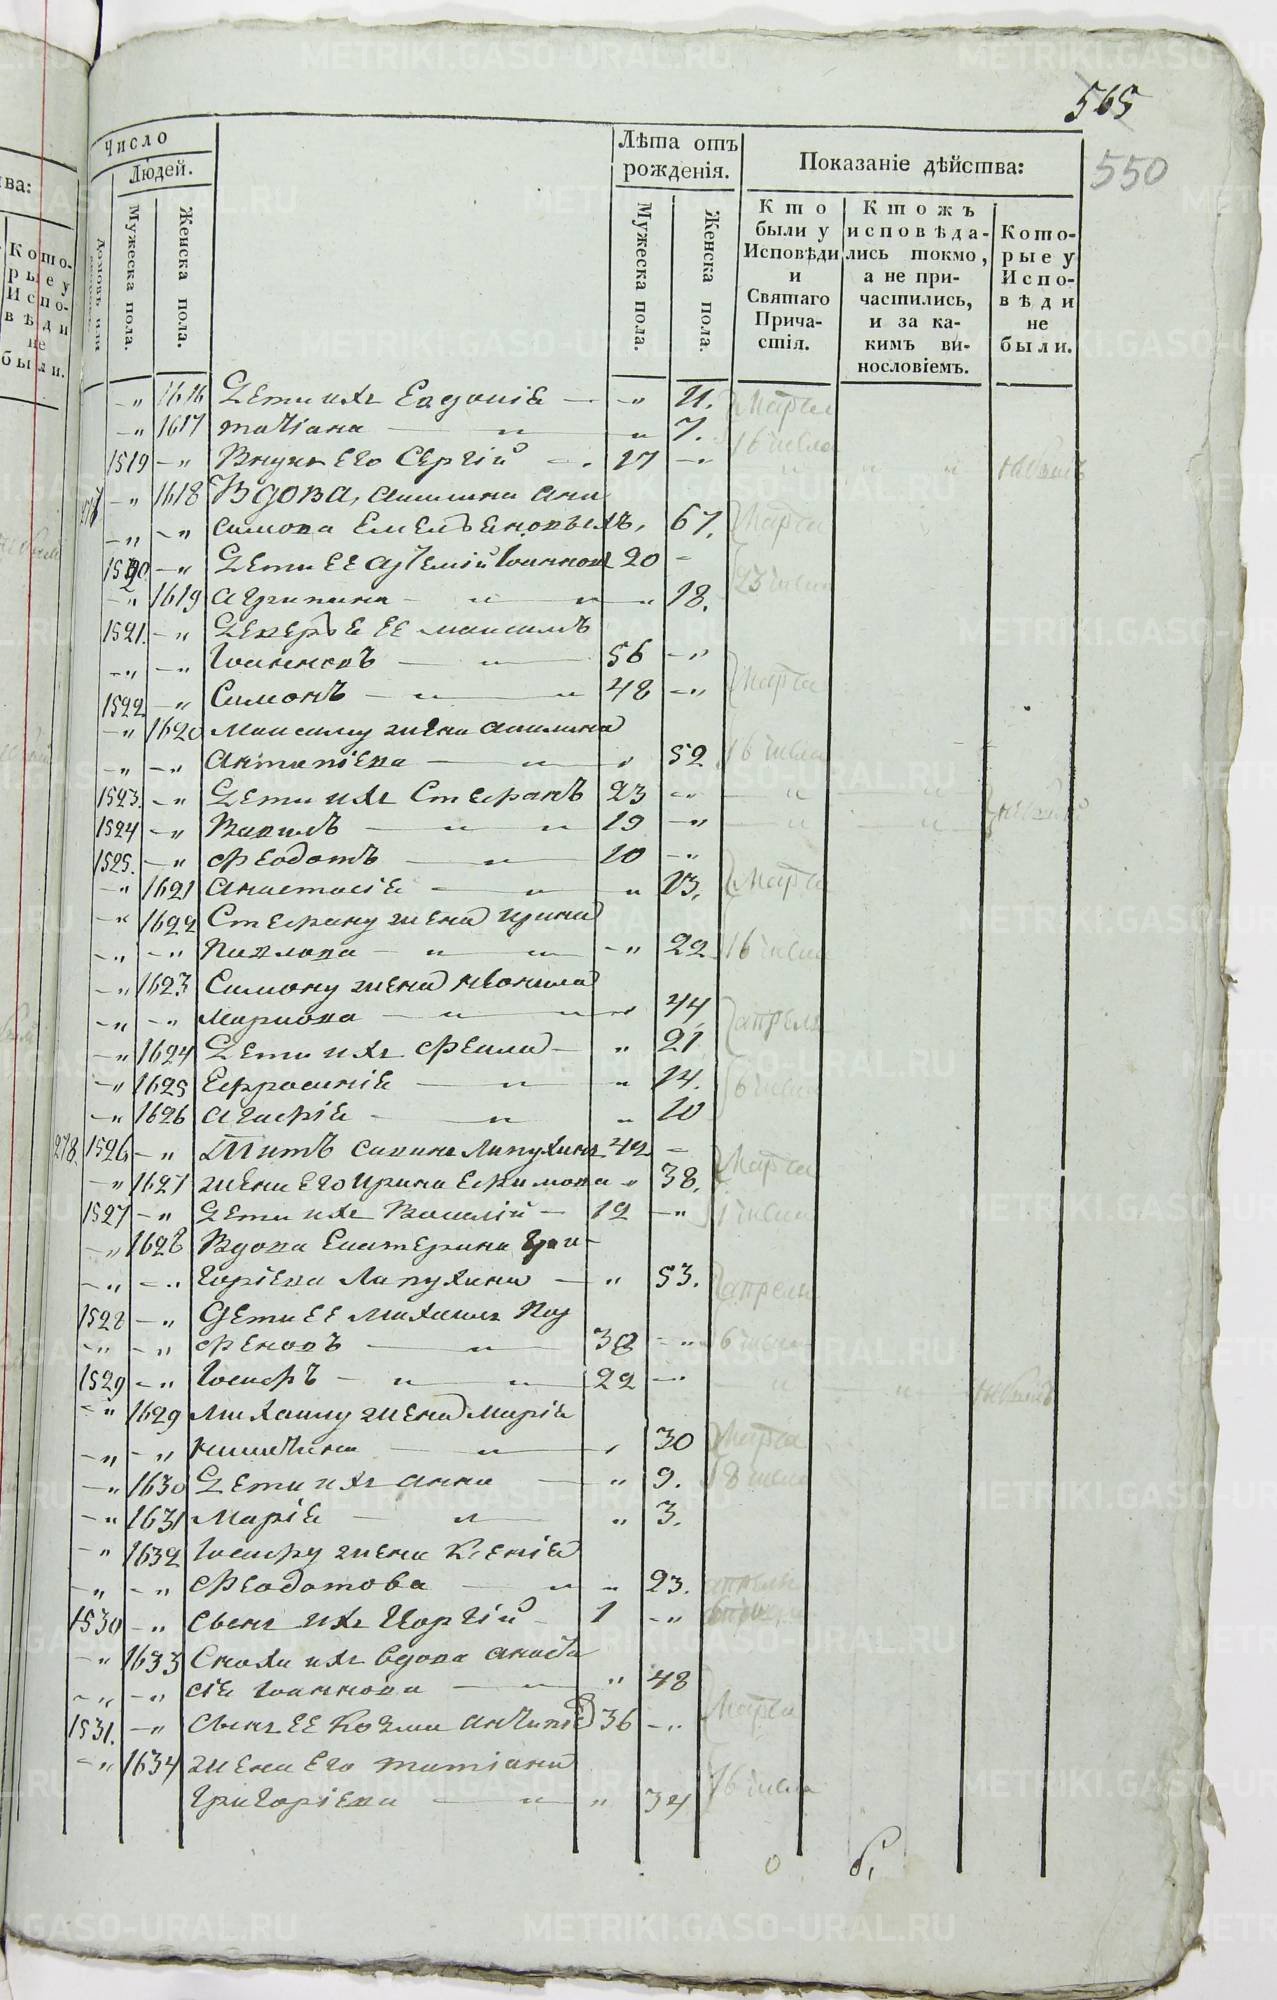 565
550
Число
Людей.
Мужеска пола.
Женска пола.
Лѣта отъ рожденія.
Мужеска пола.
Женска пола.
Показаніе дѣйства:
Кто были у Исповѣди и Святаго Причастія.
Ктожъ исповѣдались токмо, а не причастились, и за какимъ винословіемъ.
Которые у Исповѣди не были.
1616 Дети ихъ Евдокіа 11. Марта
1617 татіана 7. 16 числа
1519 Внукъ Его Сергій 17
1618 Вдова, акилина ани
симова Емельяновыхъ, 67. Марта
1520 Дети ЕЕ артемій Іоанновъ 20
1619 агрипина 18. 23 числа
1521. Деверья ЕЕ максимъ
Іоанновъ 56
1522 Симонъ 48 Марта
1620 Максиму жена акилина
Антипіева 52 16 числа
1523. Дети ихъ Стефанъ 23
1524 Вавилъ 19
1525. Феодотъ 10
1621 Анастасіа 13. Марта
1622 Стефану жена ирина
Павлова 22 16 числа
1623 Симону жена неонила
Маркова 44, апреля
1624 Дети ихъ Фекла 21
1625 Ефросиніа 14. 6 числа
1626 агафіа 10
278. 1526 Титъ савинъ Лапухинъ 42
1627 жена Его ирина Ефимова 38. Марта
1527 Дети ихъ Василій 12 числа
1628 Вдова Екатерина Гри-
горіева Лапухина 53. апреля
1528 Дети ЕЕ Михаилъ Пар
Феновъ 38 6 числа
1529 Іосифъ 22
1629 Михаилу жена Маріа
никитина 30 Марта
1630 Дети ихъ анна 9. 18 числа
1631 Маріа 3.
1632 Іосифу жена Ксеніа
Феодотова 23. апреля
1530 Сынъ ихъ Георгій 1
1633 Сноха ихъ вдова анаста
сіа Іоаннова 48
1531. Сынъ ЕЕ Козма антипіевъ 36 Марта
1634 жена Его татіана
Григоріева 34 16 числа